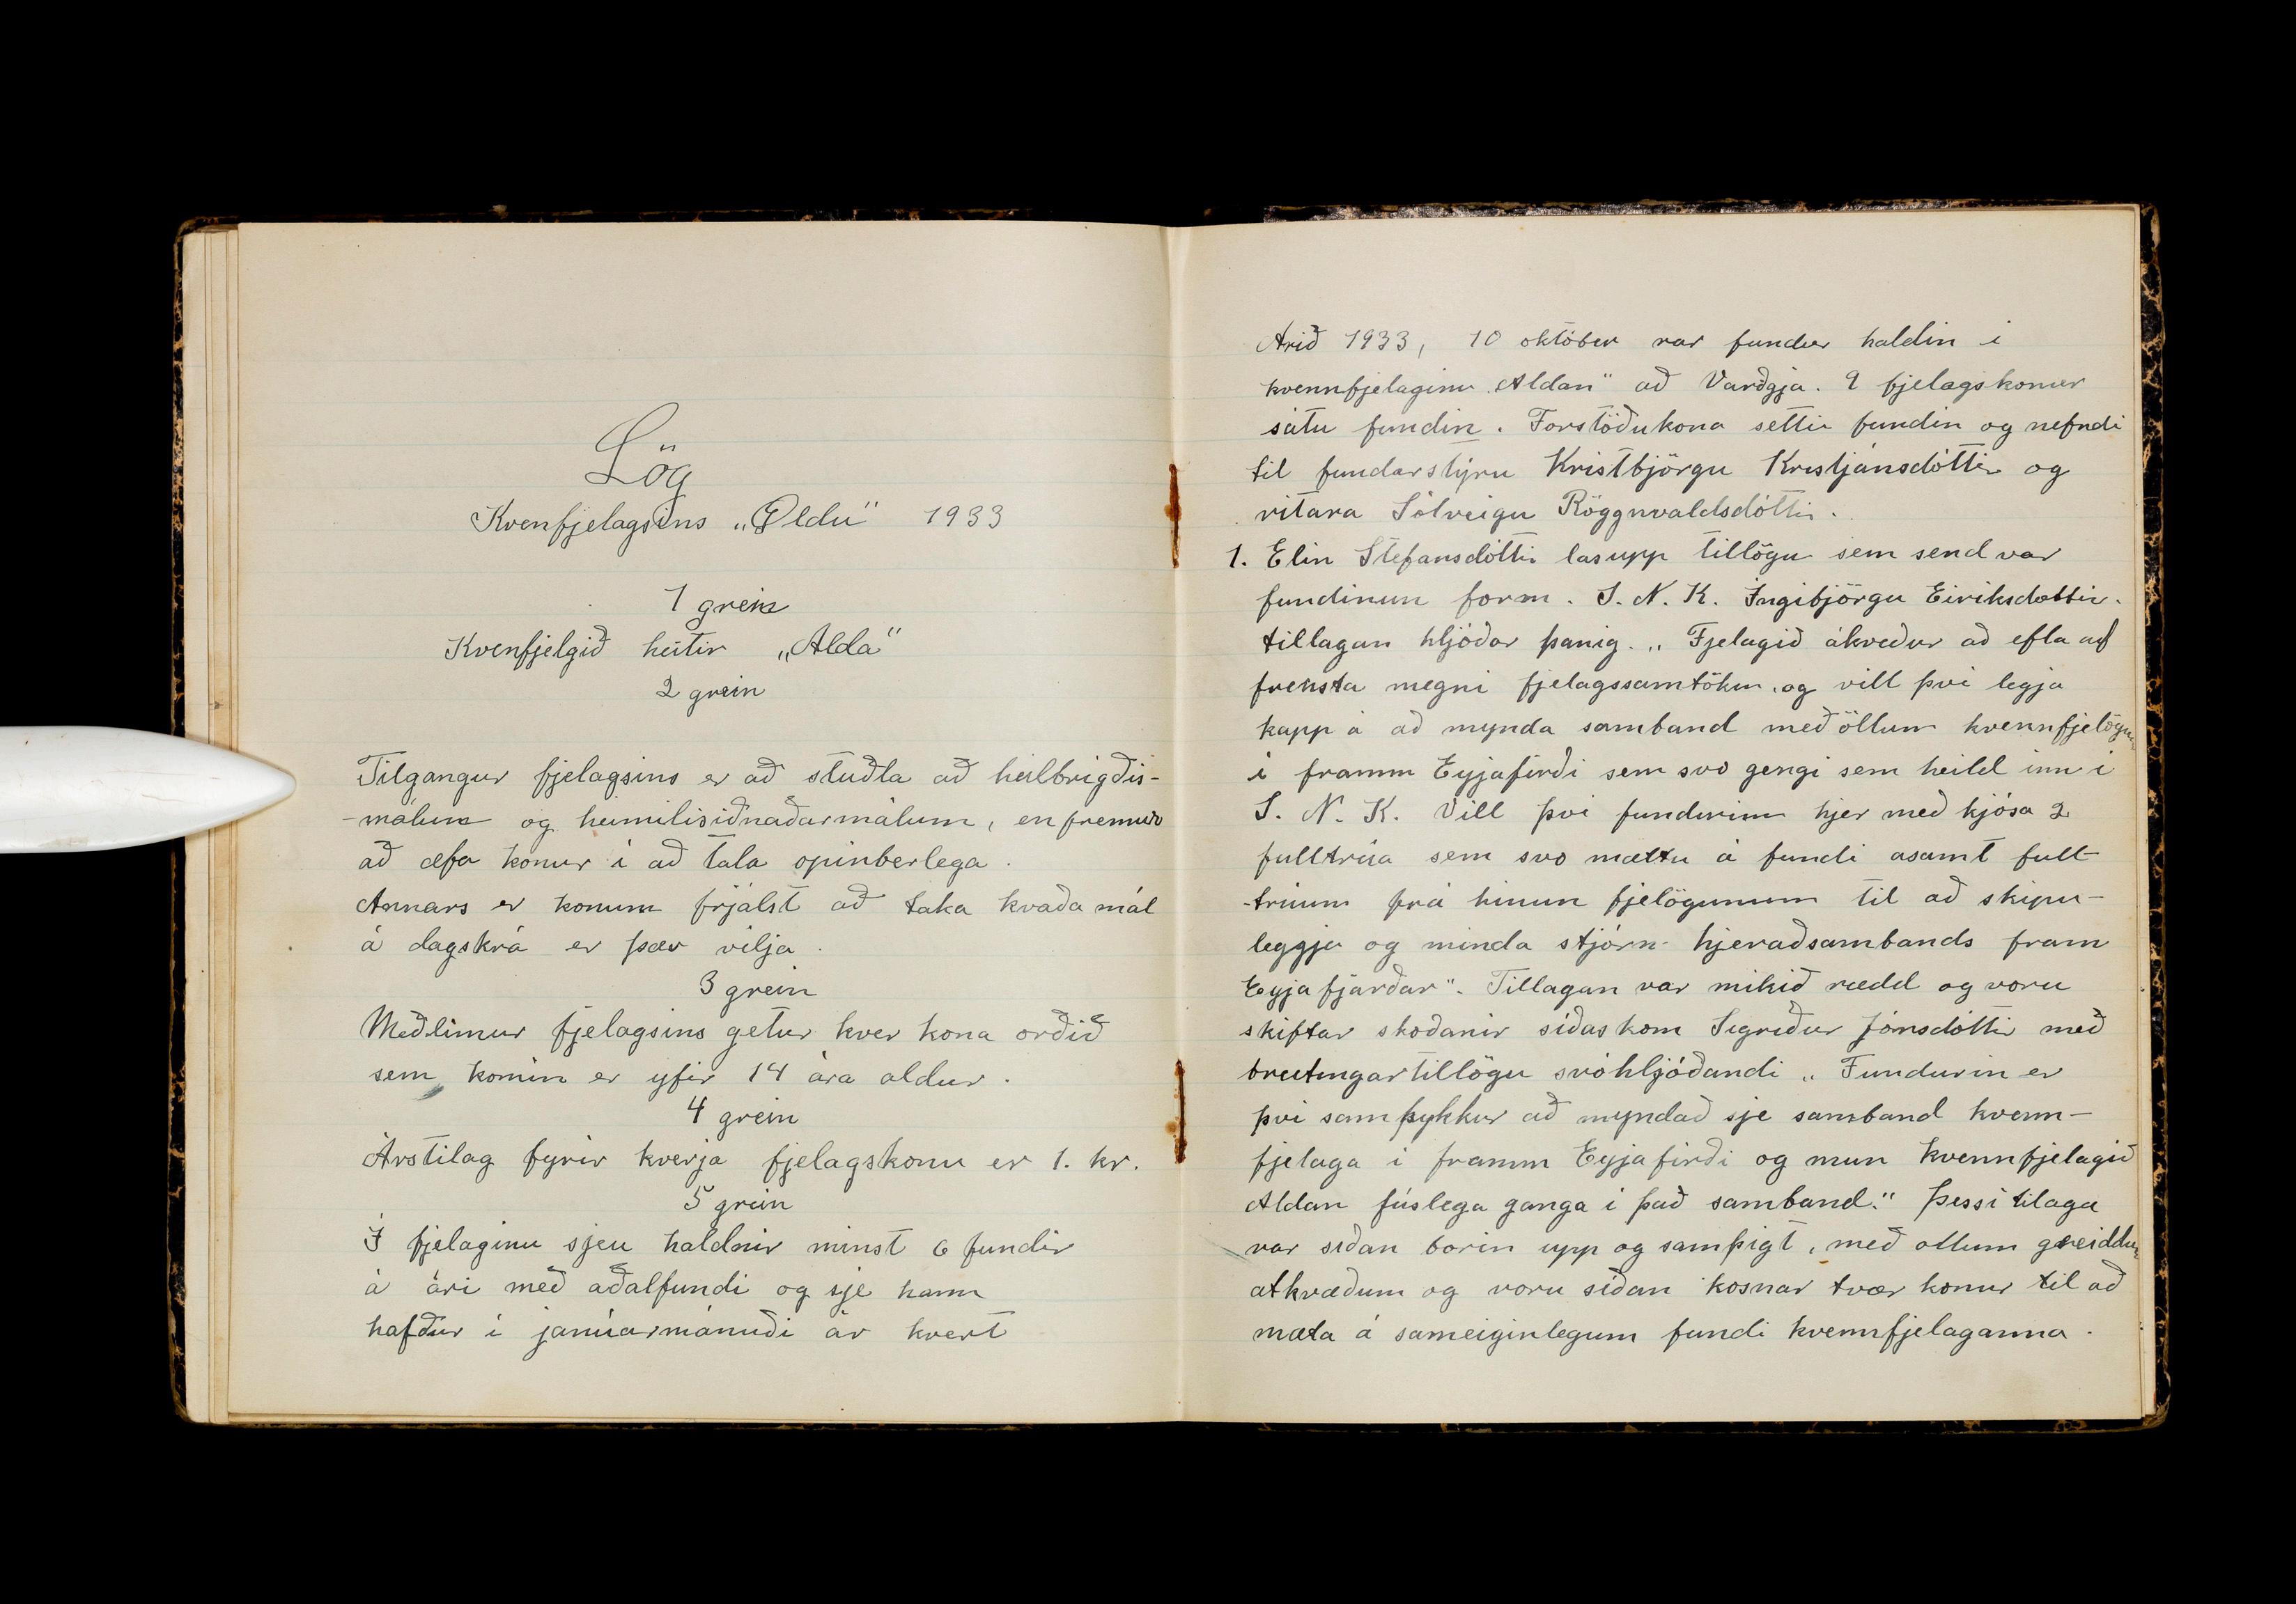 Lög
Kvenfjelagsins „Öldu" 1933
1 grein
Kvenfjelgið heitir „Alda"
2 grein
Tilgangur fjelagsins er að stuðla að heilbrigðis-
-málum og heimilisiðnaðarmálum, en fremur
að æfa konur í að tala opinberlega.
Annars er konum frjálst að taka hvaða mál
á dagskrá er þær vilja.
3 grein
Meðlimur fjelagsins getur hver kona orðið
sem komin er yfir 14 ára aldur.
4 grein
Árstilag fyrir hverja fjelagskonu er 1. kr.
5 grein
Í fjelaginu sjeu haldnir minst 6 fundir
á ári með aðalfundi og sje hann
hafður í janúarmánuði ár hvert
Árið 1933, 10 október var fundur haldin i
kvennfjelaginu „Aldan" að Varðgjá. 9 fjelagskonur
sátu fundin. Forstöðukona setti fundin og nefndi
til fundarstýru Kristbjörgu Kristjánsdóttir og
ritara Sólveigu Röggnvaldsdóttir.
1. Elin Stefansdóttir las upp tillögu sem send var
fundinum form. S. N. K. Ingibjörgu Eiriksdottir.
tillagan hljóðar þanig. „Fjelagið ákveður að efla af
fremsta megni fjelagssamtökin, og vill því legja
kapp á að mynda samband með öllum kvennfjelögum
i framm Eyjafirði sem svo gengi sem heild inn i
S. N. K. Vill því fundurinn hjer með kjósa 2
fulltrúa sem svo mættu á fundi asamt full-
-trúum frá hinun fjelögunum til að skipu-
leggja og minda stjórn hjeraðsambands fram
Eyjafjarðar". Tillagan var mikið rædd og voru
skiftar skoðanir síðas kom Sigriður Jónsdóttir með
breitingartillögu svohljóðandi „Fundurin er
því samþykkur að myndað sje samband kvenn-
fjelaga i framm Eyjafirði og mun kvennfjelagið
Aldan fúslega ganga i það samband." Þessi tilaga
var síðan borin upp og samþigt, með ollum greiddum
atkvæðum og voru síðan kosnar tvær konur til að
mæta á sameiginlegum fundi kvennfjelaganna.